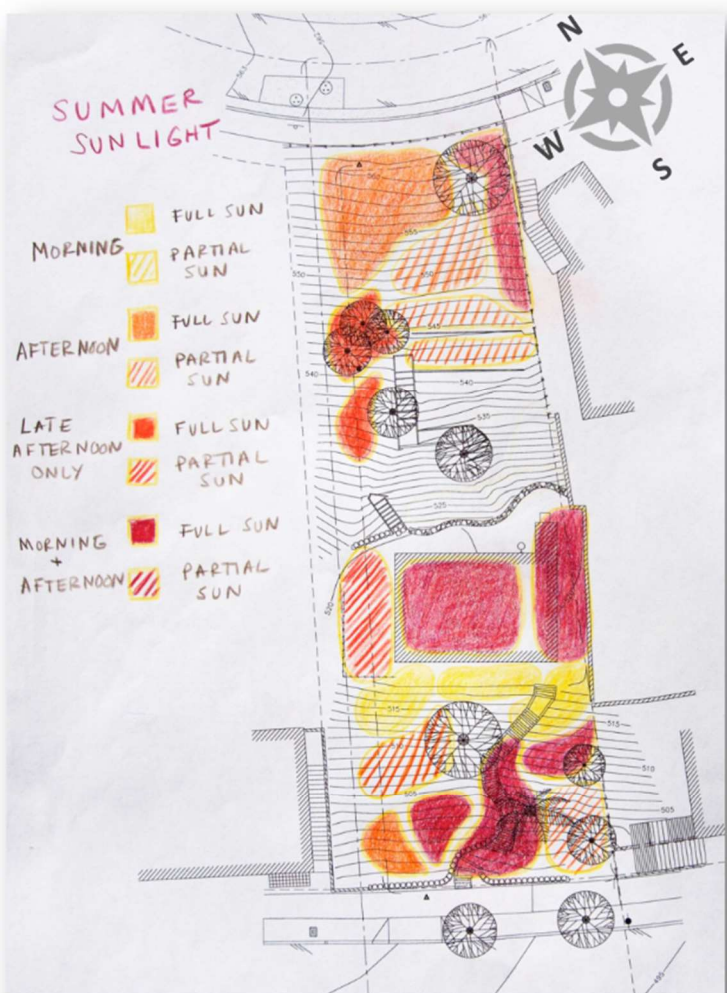 N
E
W
S
SUMMER
SUNLIGHT
FULL SUN
MORNING
PARTIAL
SUN
FULL SUN
AFTERNOON
PARTIAL
SUN
LATE
AFTERNOON
ONLY
FULL SUN
PARTIAL
SUN
MORNING
+
AFTERNOON
FULL SUN
PARTIAL
SUN
555
550
550
545
540
540
535
525
520
515
515
510
505
505